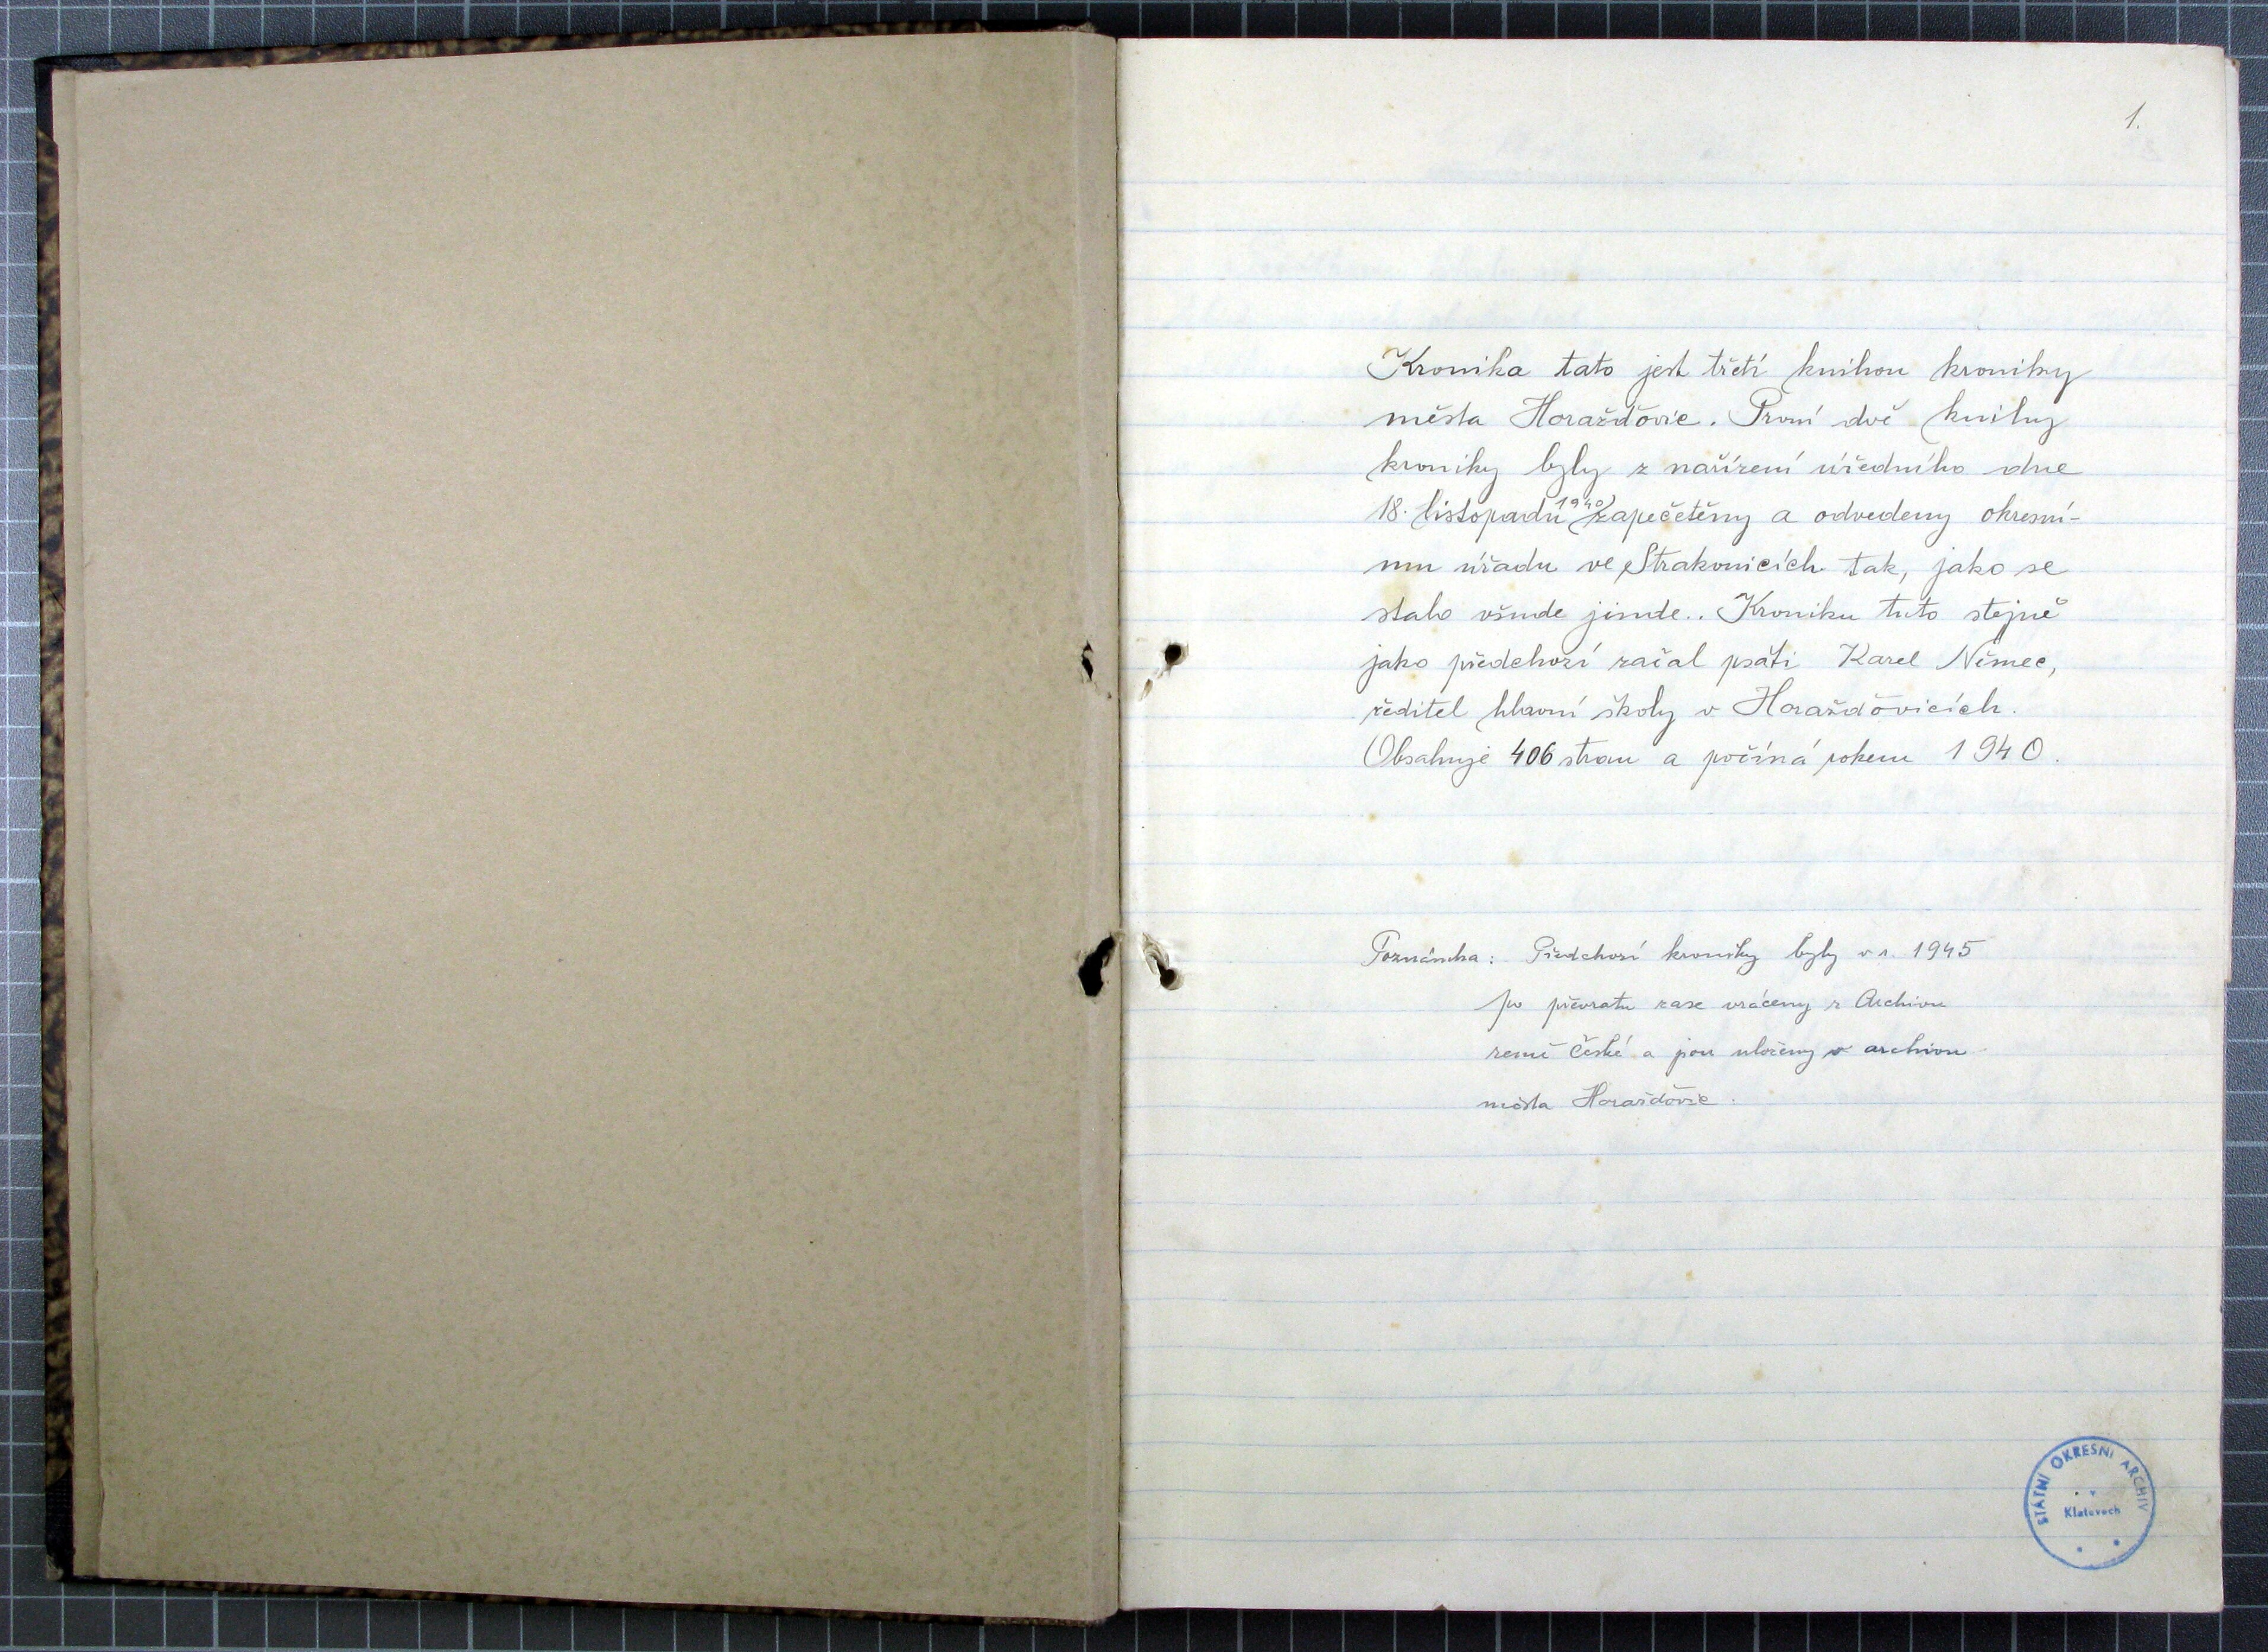 1.
Kronika tato jest třetí knihou kroniky
města Horažďovic. První dvě knihy
kroniky byly z nařízení úředního dne
18. listopadu 1940 zapečetěny a odvedeny okresní-
mu úřadu ve Strakonicích tak, jako se
stalo všude jinde.. Kroniku tuto stejně
jako předchozí začal psáti Karel Němec,
ředitel hlavní školy v Horažďovicích.
Obsahuje 406 stran a počíná rokem 1940.
Poznámka: Předchozí kroniky byly v r. 1945
po převratu zase vráceny z Archivu
země České a jsou uloženy v archivu
města Horažďovic.
STÁTNÍ OKRESNÍ ARCHIV
v
Klatovech